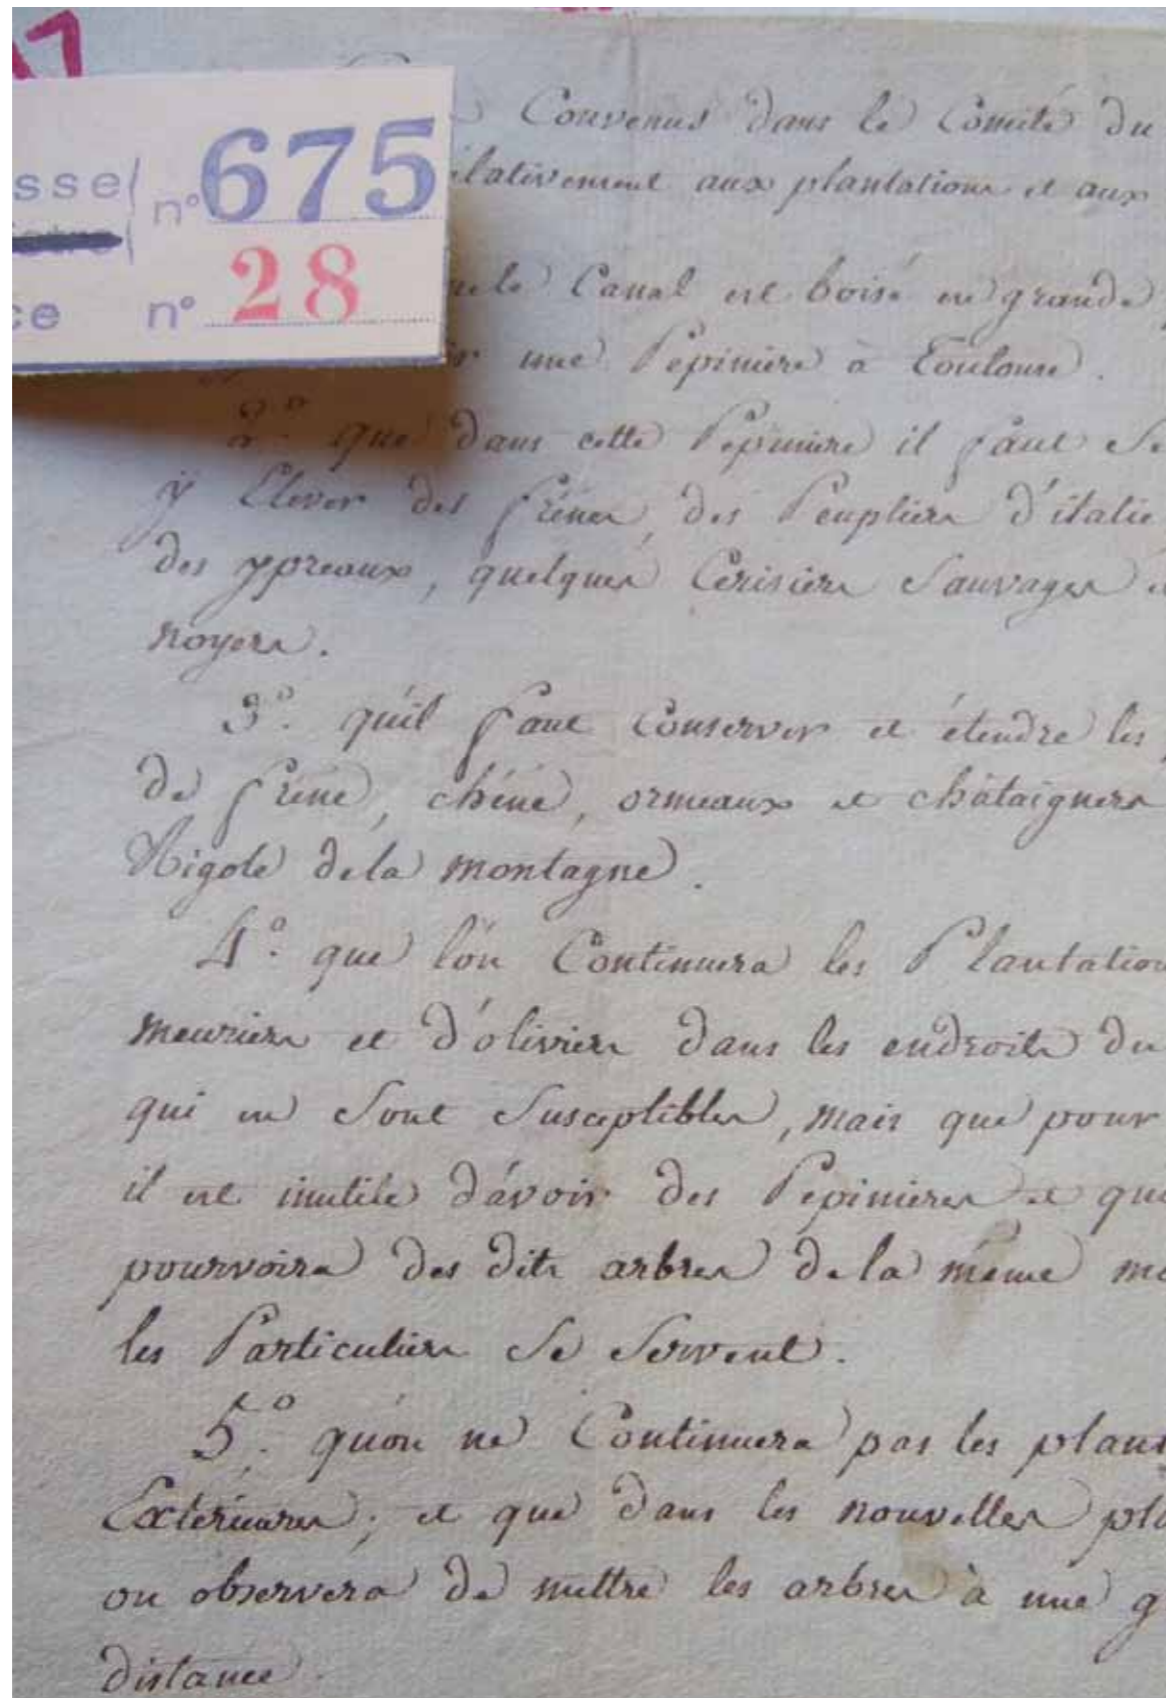 17
sse n° 675
ce n° 28
Convenus dans le Comité du
lativement aux plantations et aux
le Canal est boisé en grande
une Pépiniere à Toulouse.
2° que dans cette Pépiniere il faut Se
y Elever des frénes, des Peupliers d'italie
des ypreaux, quelques Cerisiers Sauvages
noyers.
3° qu'il faut Conserver et étendre les
de fréne, chéne, ormeaux et châtaigners
Rigole dela montagne.
4° que l'on Continuera les Plantation
meuriers et d'oliviers dans les endroits du
qui en Sont Susceptibles, mais que pour
il est inutile d'avoir des Pépinieres et que
pourvoira des dits arbres de la même ma
les Particuliers Se Servent.
5° qu'on ne Continuera pas les plant
Extérieures; et que dans les nouvelles pla
on observera de mettre les arbres à une g
distance.